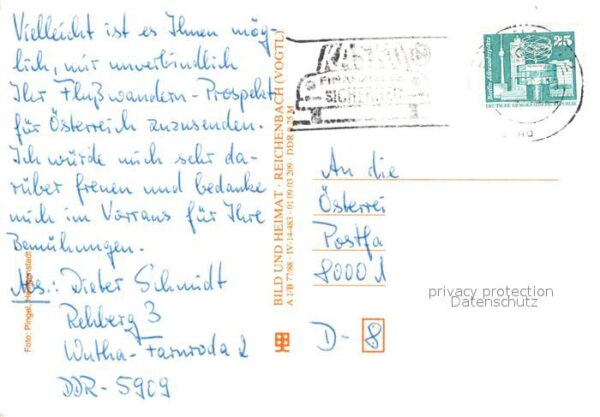 Vielleicht ist es Ihnen mög-
lich, mir unverbindlich
Ihr Flußwandern-Prospekt
für Österreich zuzusenden.
Ich würde mich sehr da-
rüber freuen und bedanke
mich im Vorraus für Ihre
Bemühungen.
Abs.: Dieter Schmidt
Rehberg 3
Wutha-Farnroda 2
DDR-5909
Foto: Pingel,
BILD UND HEIMAT · REICHENBACH (VOGTL)
A 1/B 7788 · IV-14-483 · 01 09 03 209 · DDR
SICHERHEIT
25
DEUTSCHE DEMOKRATISCHE REPUBLIK
An die
Österrei
Postfa
8000
D-8
privacy protection
Datenschutz